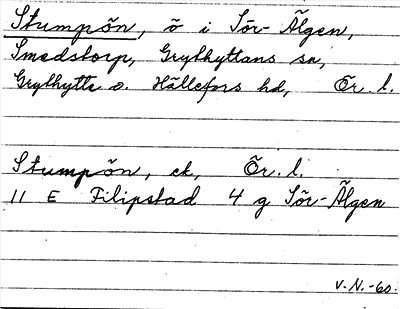 Stumpön, ö i Sör-Älgen,
Smedstorp, Grythyttans sn,
Grythytte o. Hällefors hd, Ör. l.
Stumpön, ek, Ör. l.
11 E Filipstad 4 g Sör-Älgen
V.N.-60.